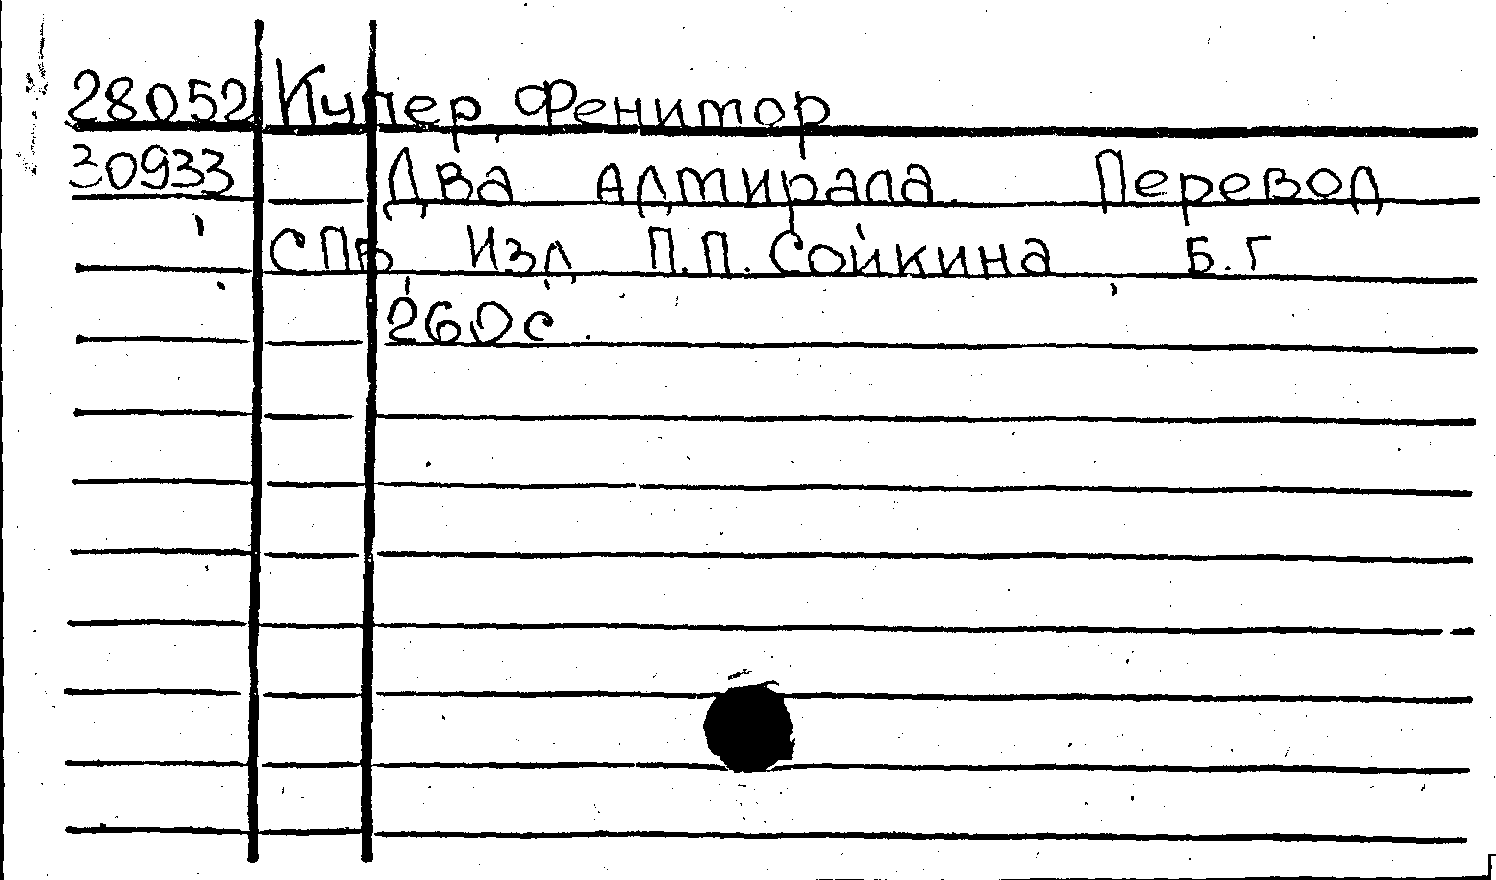 28052 Купер Фенитор
30933 Два адмирала. Перевод
СПБ Изд П.П. Сойкина Б.Г
260с.